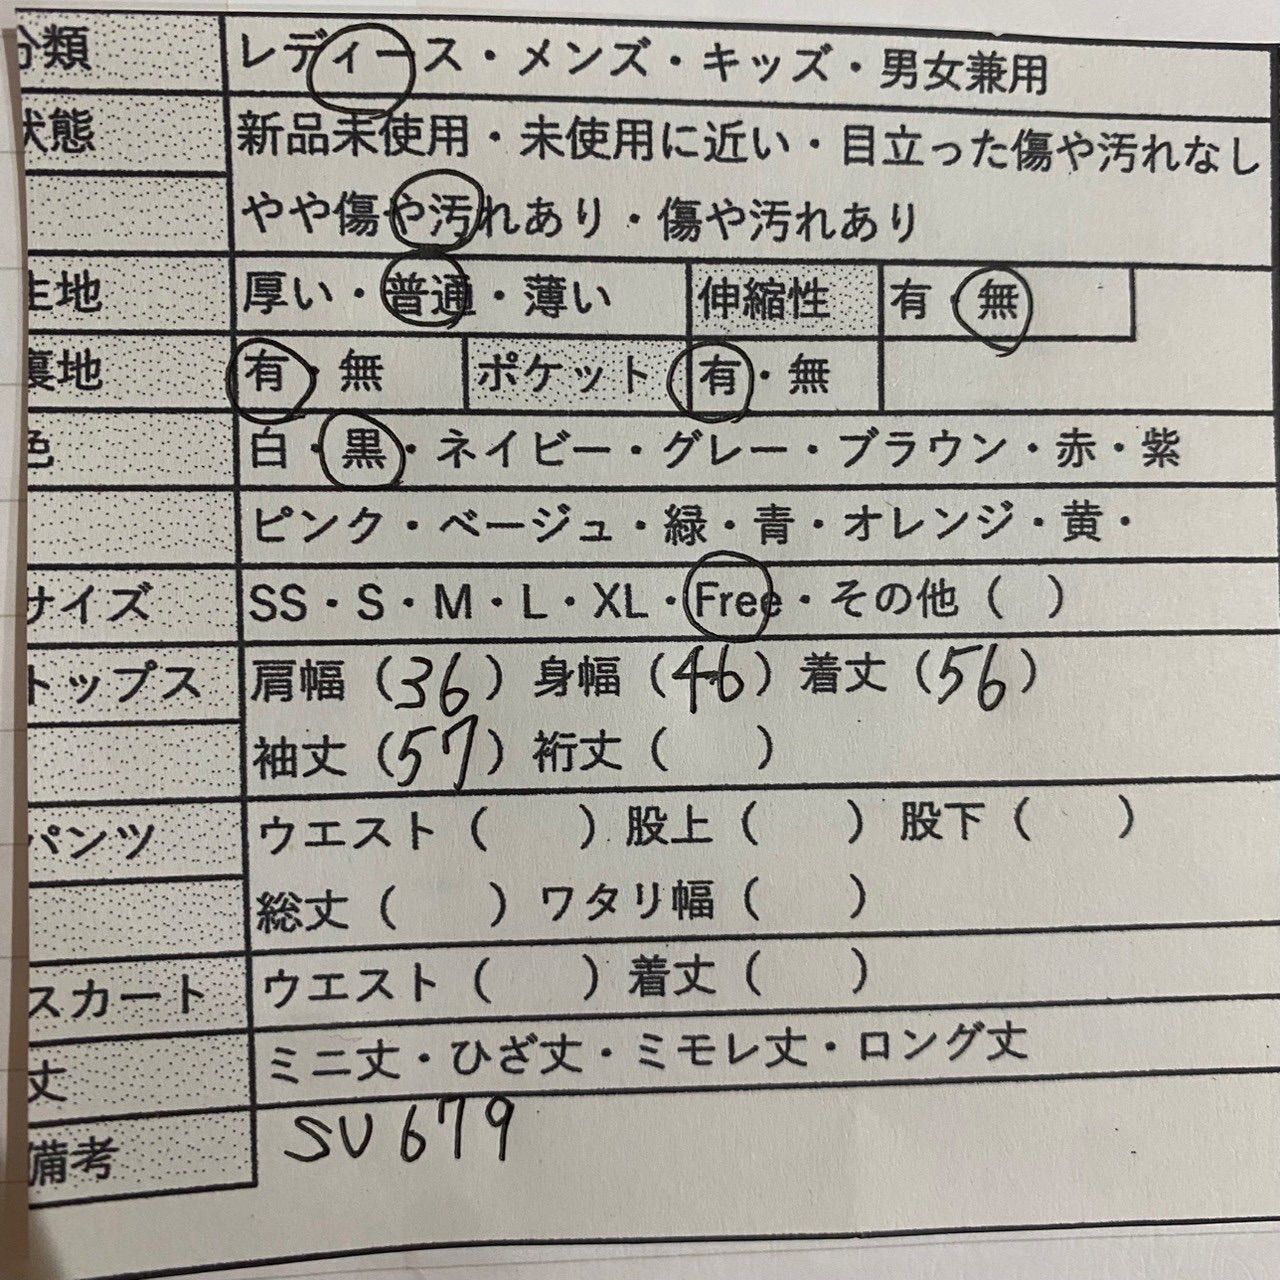 分類 レディース・メンズ・キッズ・男女兼用
状態 新品未使用・未使用に近い・目立った傷や汚れなし
やや傷や汚れあり・傷や汚れあり
生地 厚い・普通・薄い 伸縮性 有・無
裏地 有・無 ポケット 有・無
色 白・黒・ネイビー・グレー・ブラウン・赤・紫
ピンク・ベージュ・緑・青・オレンジ・黄・
サイズ SS・S・M・L・XL・Free・その他（ ）
トップス 肩幅（36）身幅（46）着丈（56）
袖丈（57）裄丈（ ）
パンツ ウエスト（ ）股上（ ）股下（ ）
総丈（ ）ワタリ幅（ ）
スカート ウエスト（ ）着丈（ ）
丈 ミニ丈・ひざ丈・ミモレ丈・ロング丈
備考 SU679